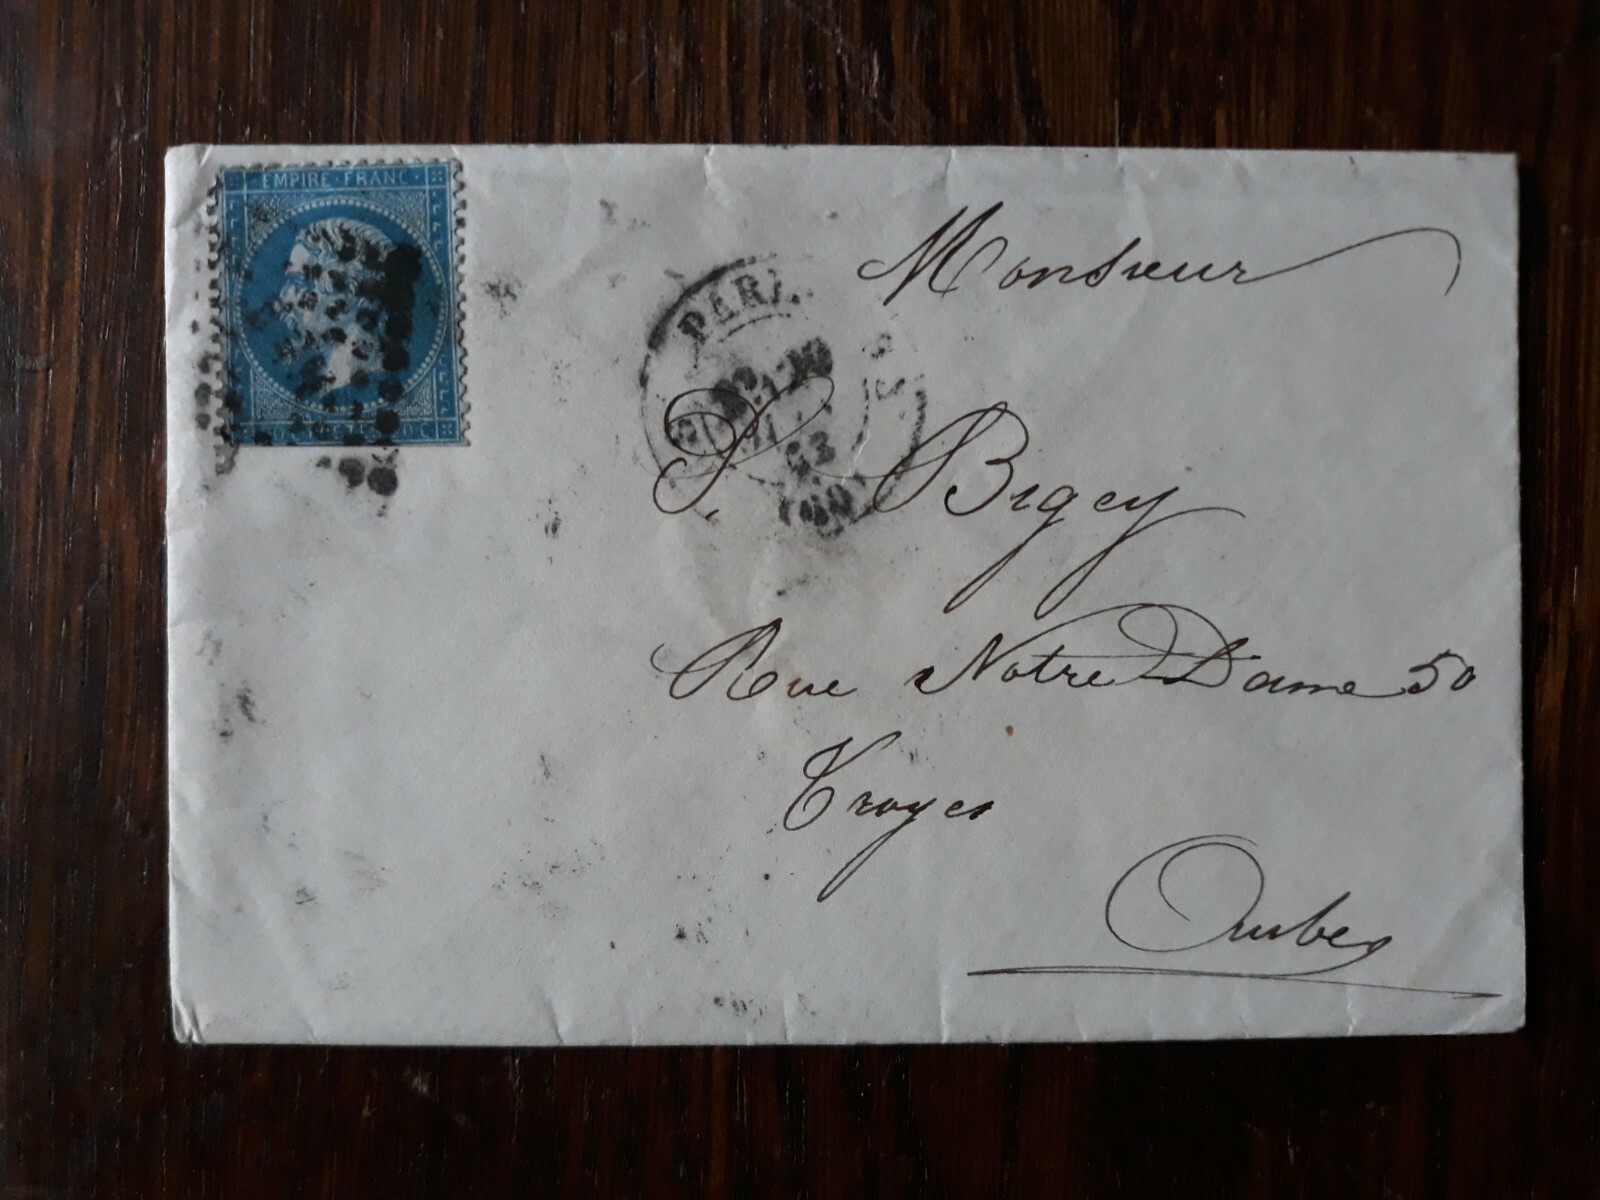 EMPIRE FRANC
POSTES
PARIS
63
(60)
Monsieur
P. Bigey
Rue Notre Dame 50
Troyes
Aube